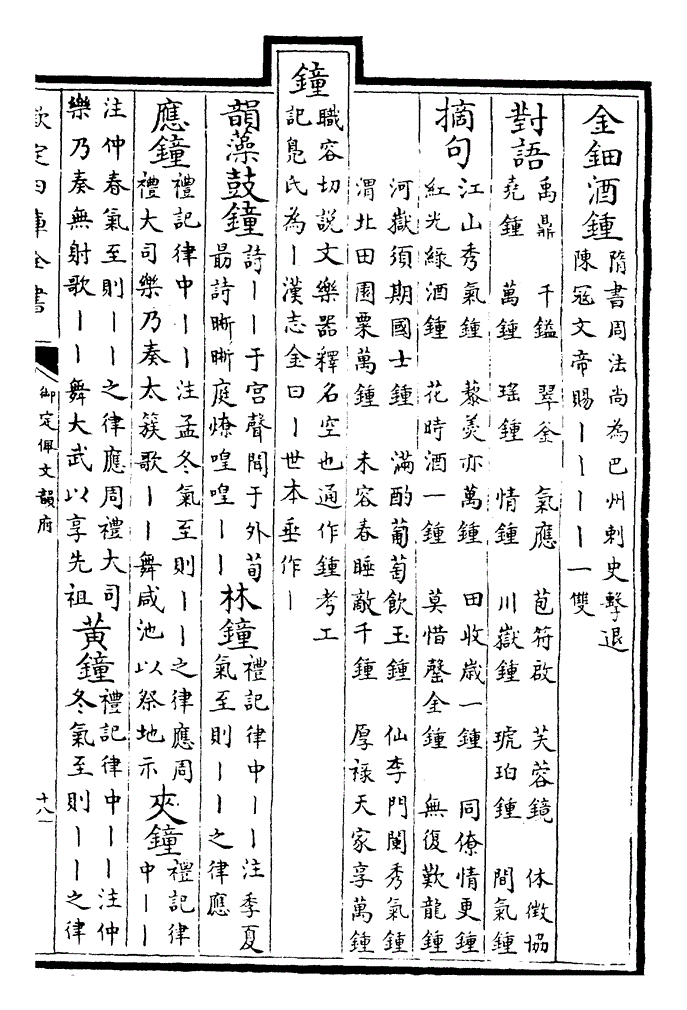 金鈿酒鍾
隋書周法尚為巴州刺史擊退
陳寇文帝賜丨丨丨丨一雙
對語
禹鼎　千鎰　翠釜　氣應　苞符啟　芙蓉鏡　休徵協
堯鍾　萬鍾　瑤鍾　情鍾　川嶽鍾　琥珀鍾　間氣鍾
摘句
江山秀氣鍾　藜羮亦萬鍾　田收歳一鍾　同僚情更鍾
紅光綠酒鍾　花時酒一鍾　莫惜罄金鍾　無復歎龍鍾
河嶽須期國士鍾　滿酌葡萄飲玉鍾　仙李門闌秀氣鍾
渭北田園粟萬鍾　未容春睡敵千鍾　厚祿天家享萬鍾
鐘
職容切説文樂器釋名空也通作鍾考工
記鳬氏為丨漢志金曰丨世本垂作丨
韻藻鼓鐘
詩丨丨于宫聲聞于外荀
勗詩晣晣庭燎喤喤丨丨
林鐘
禮記律中丨丨注季夏
氣至則丨丨之律應
應鐘
禮記律中丨丨注孟冬氣至則丨丨之律應周
禮大司樂乃奏太簇歌丨丨舞咸池以祭地示
夾鐘
禮記律
中丨丨
注仲春氣至則丨丨之律應周禮大司
樂乃奏無射歌丨丨舞大武以享先祖
黃鐘
禮記律中丨丨注仲
冬氣至則丨丨之律
欽定四庫全書
御定佩文韻府
十八